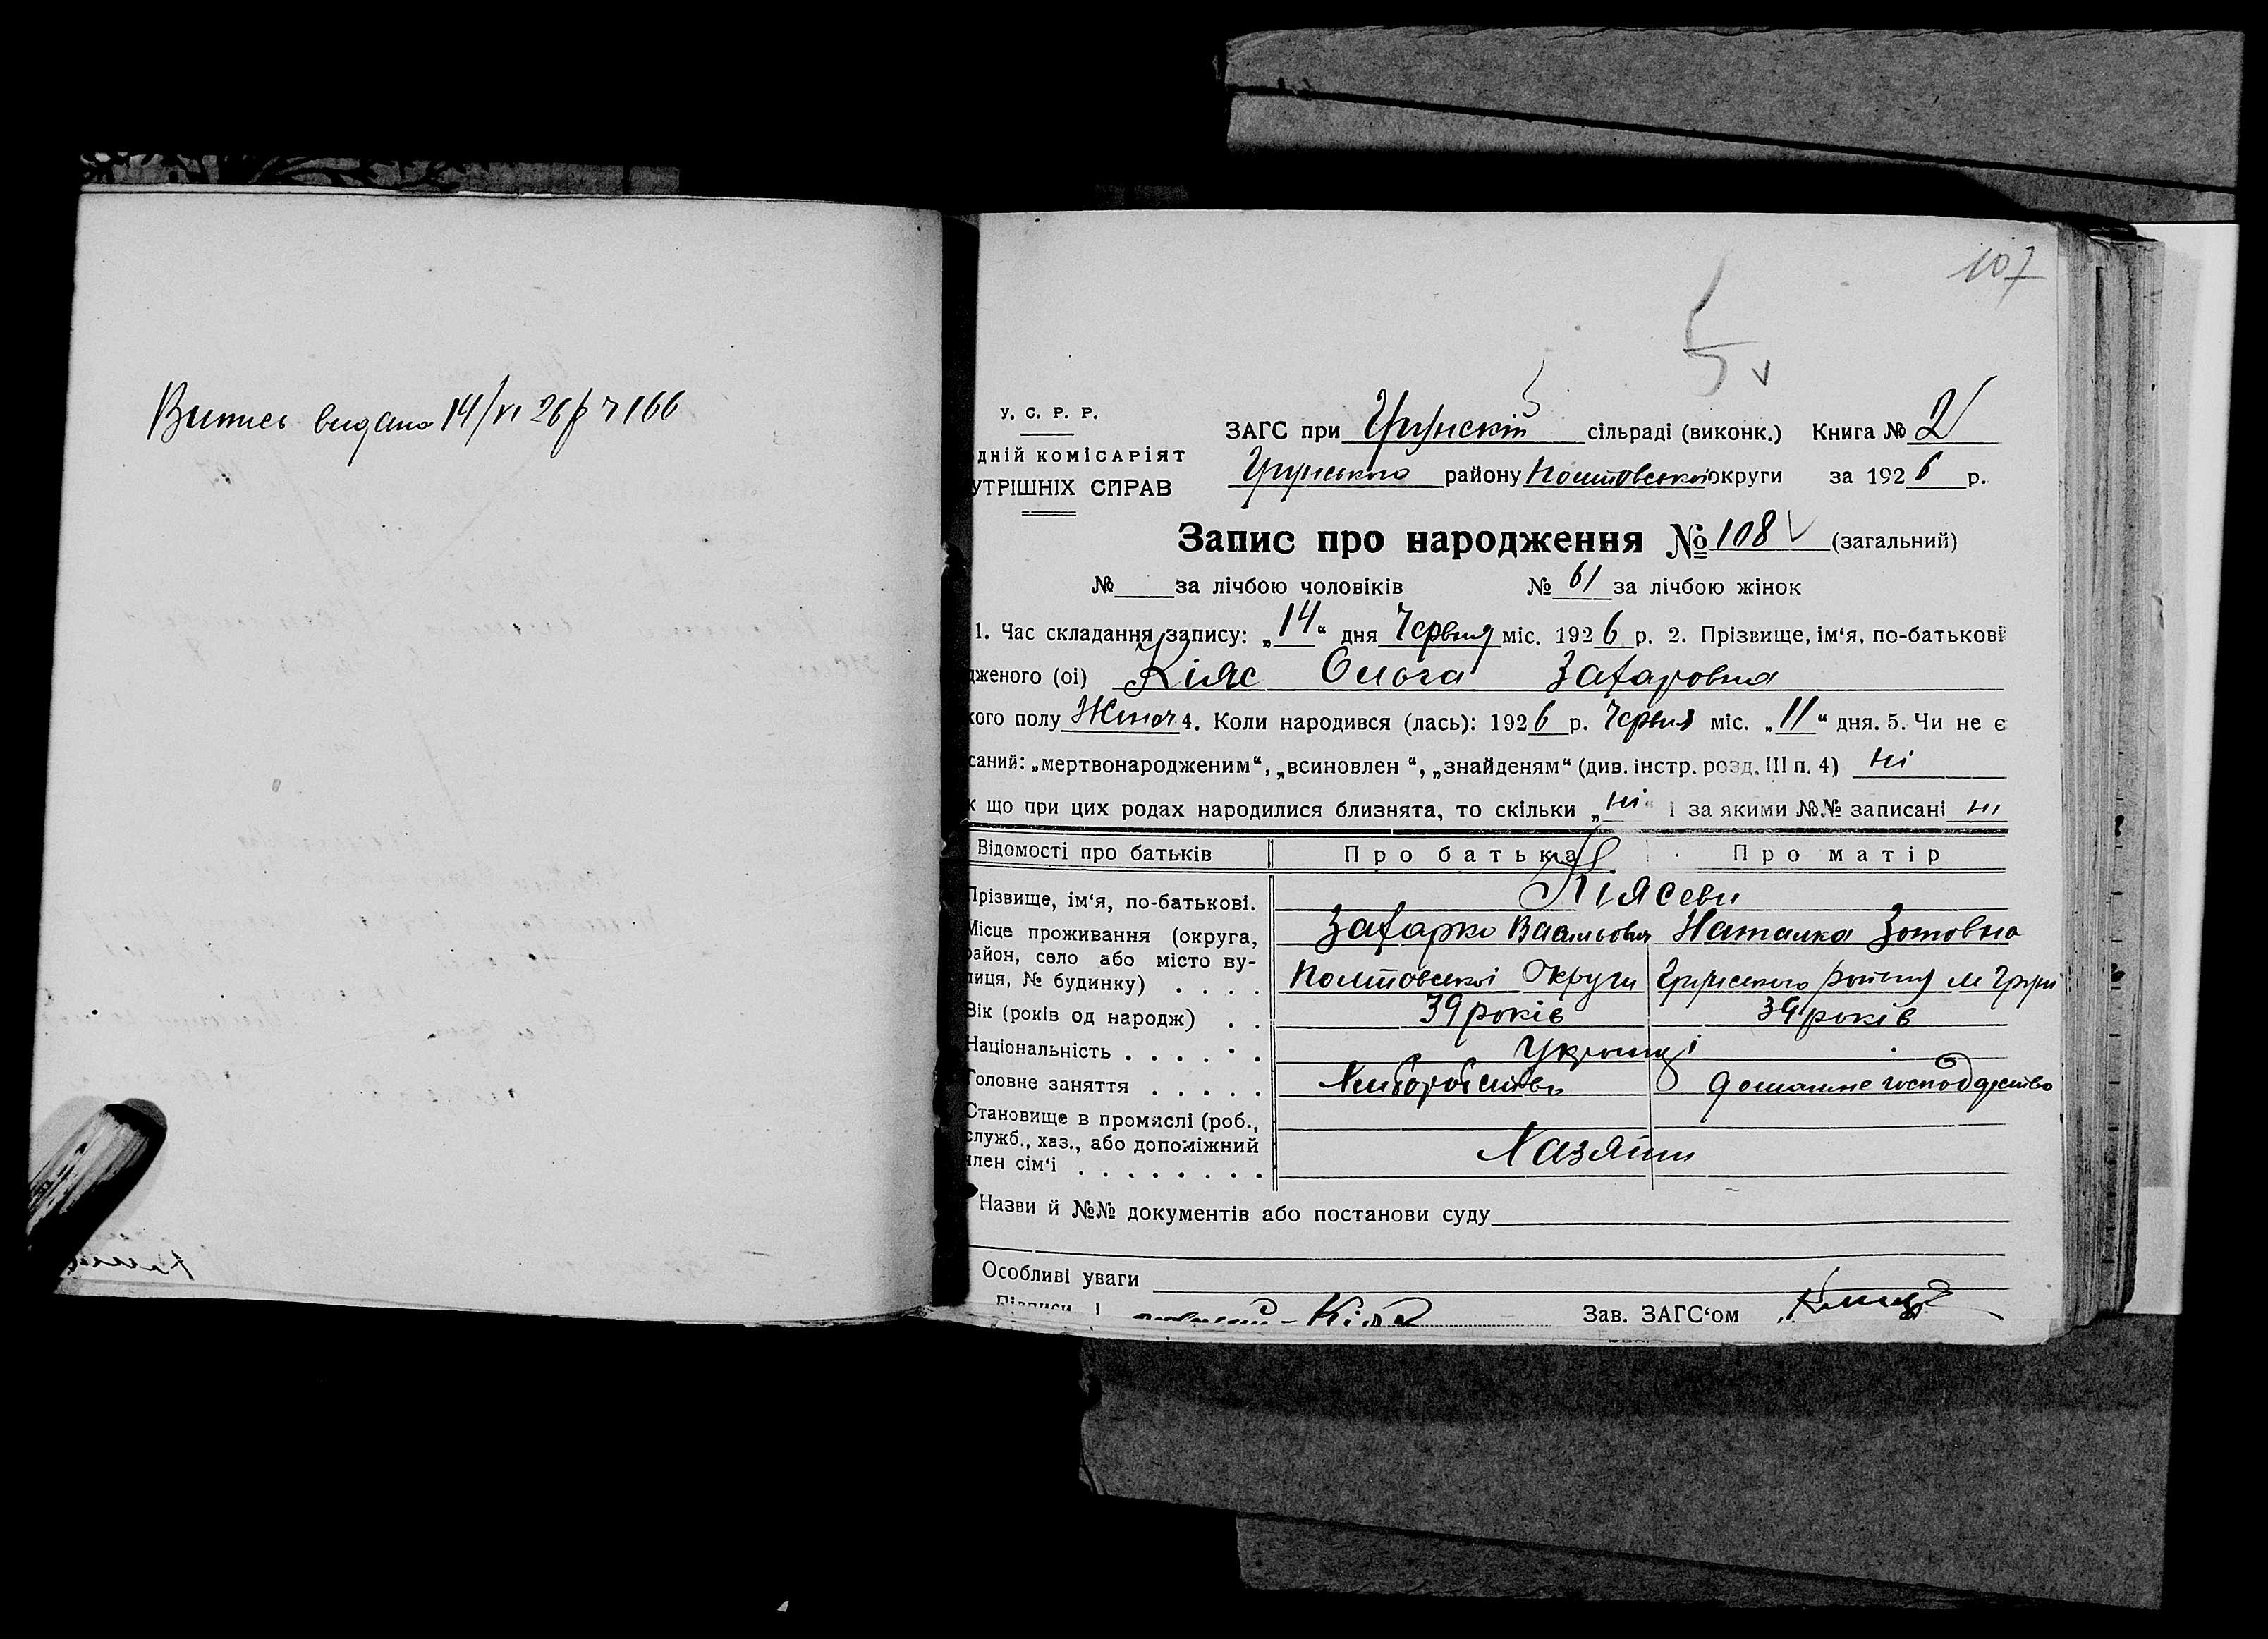 Випись видано 14/VI 26 р ч 166
107
5 v
У. С. Р. Р.
ЗАГС при Грунскій сільраді (виконк.) Книга № 2
дній комісаріят
Грунського району Полтовської округи за 1926 р.
утрішніх справ
Запис про народження № 108 v (загальний)
№ за лічбою чоловіків № 61 за лічбою жінок
1. Час складання запису: „14“ дня Червня міс. 1926 р. 2. Прізвище, ім‘я, по-батькові
дженого (ої) Кіяс Ольга Захаровна
кого полу Жіноч 4. Коли народився (лась): 1926 р. Червня міс. „11“ дня. 5. Чи не є
саний: „мертвонародженим“, „всиновлен “, „знайденям“ (див. інстр. розд. III п. 4) ні
к що при цих родах народилися близнята, то скільки „ні“ і за якими №№ записані ні
Відомості про батьків Про батька Про матір
Кіясеви
Прізвище, ім‘я, по-батькові.
Захарко Васильович Наталка Зотовна
Місце проживання (округа,
район, село або місто ву-
лиця, № будинку) . . . . Полтовської Округи Грунського району м Груні
Вік (років од народж) . . 39 років 39 років
Національність . . . . . . Українці
Головне заняття . . . . . Хліборобство домашне господарство
Становище в промислі (роб.,
служб., хаз., або допоміжний
член сім‘ї . . . . . . . . Хазяіни
Назви й №№ документів або постанови суду
Особливі уваги
Підписи Кіяс Зав. ЗАГС‘ом